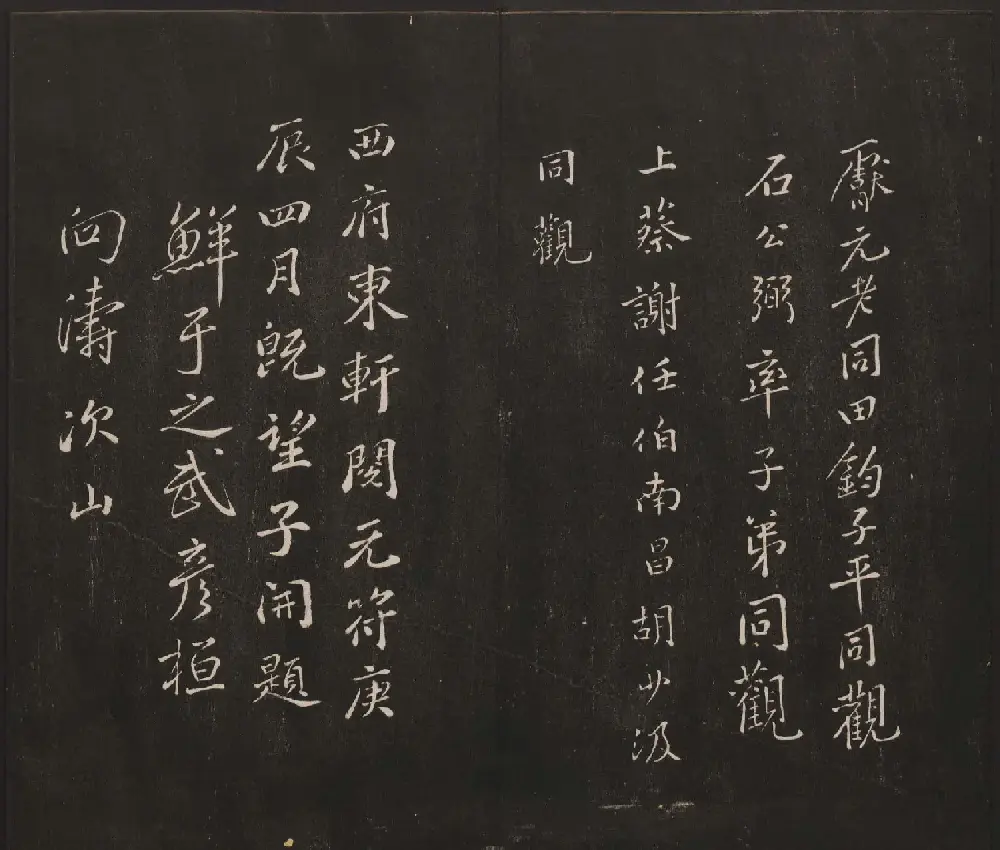 元老同田鈞子平同觀
石公弼率子弟同觀
上蔡謝任伯南昌胡少汲
同觀
西府東軒閱元符庚
辰四月既望子開題
鮮于之武彥桓
向濤次山